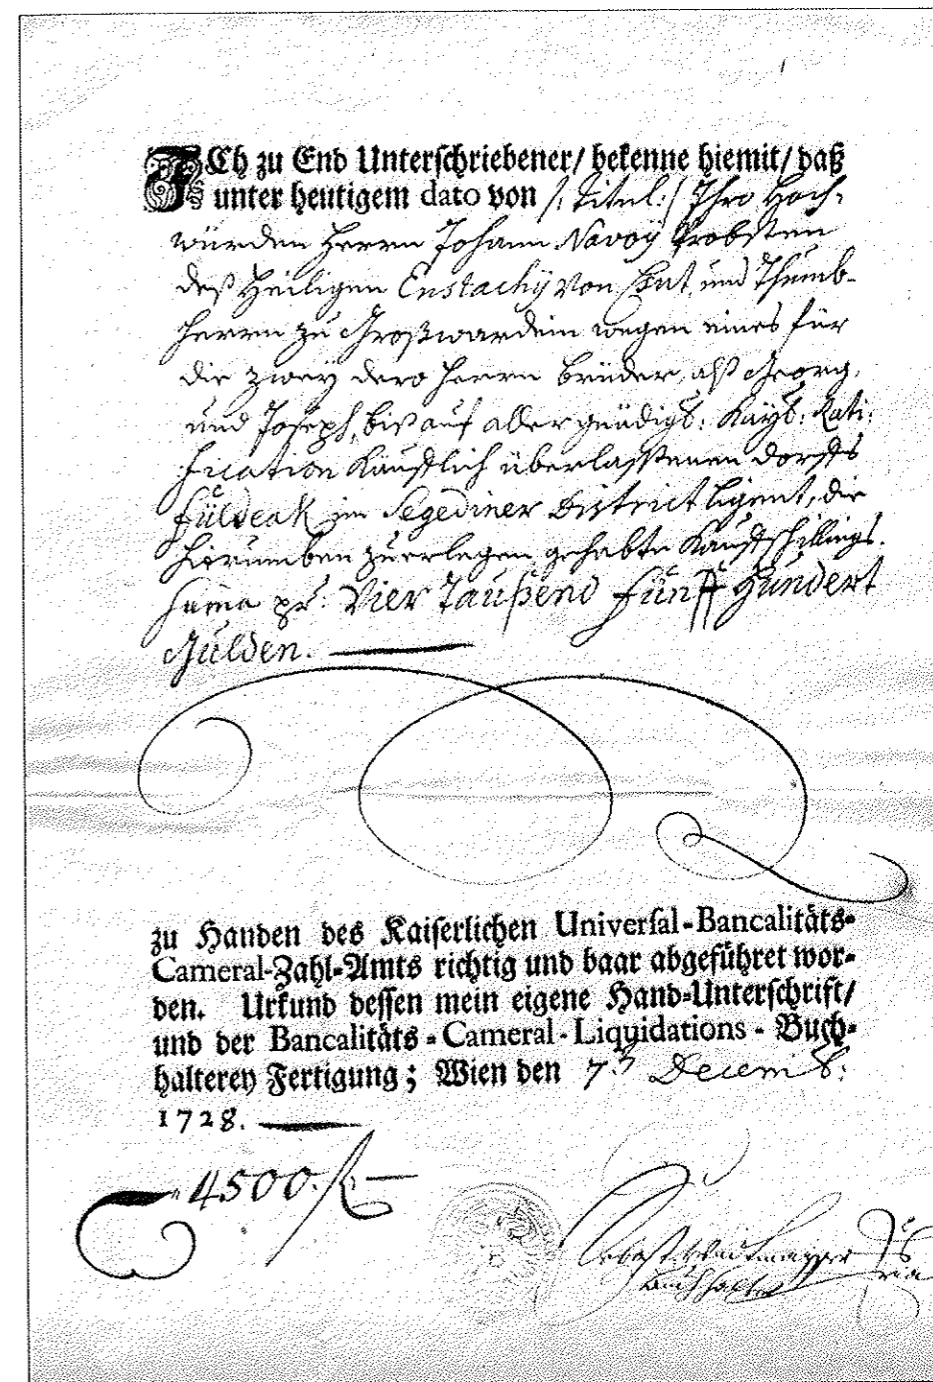 ICh zu End Unterschriebener/ bekenne hiemit/ daß
unter heutigem dato von /: Titul :/ Ihro Hoch-
würden Herrn Johann Navoÿ Probsten
deß Heiligen Eustachÿ von und Thumb-
herrn zu Großwardein wegen eines für
die zweÿ dero Herrn Brüder, alß Georg,
und Joseph, biß auf allergnädigs: Kaÿs: Rati-
fication Käufflich überlassenen Dorffs
Füldeak im Segediner District ligent, die
hierumben zuerlegen gehabte Kauffschillings-
Suma pr: Vier Taußend Fünff Hundert
Gulden.
zu Handen des Kaiserlichen Universal-Bancalitäts-
Cameral-Zahl-Amts richtig und baar abgeführet wor-
den. Urkund dessen mein eigene Hand-Unterschrift/
und der Bancalitäts-Cameral-Liquidations-Buch-
halterey Fertigung; Wien den 7 Decemb:
1728.
4500. fl.
Buchhalter